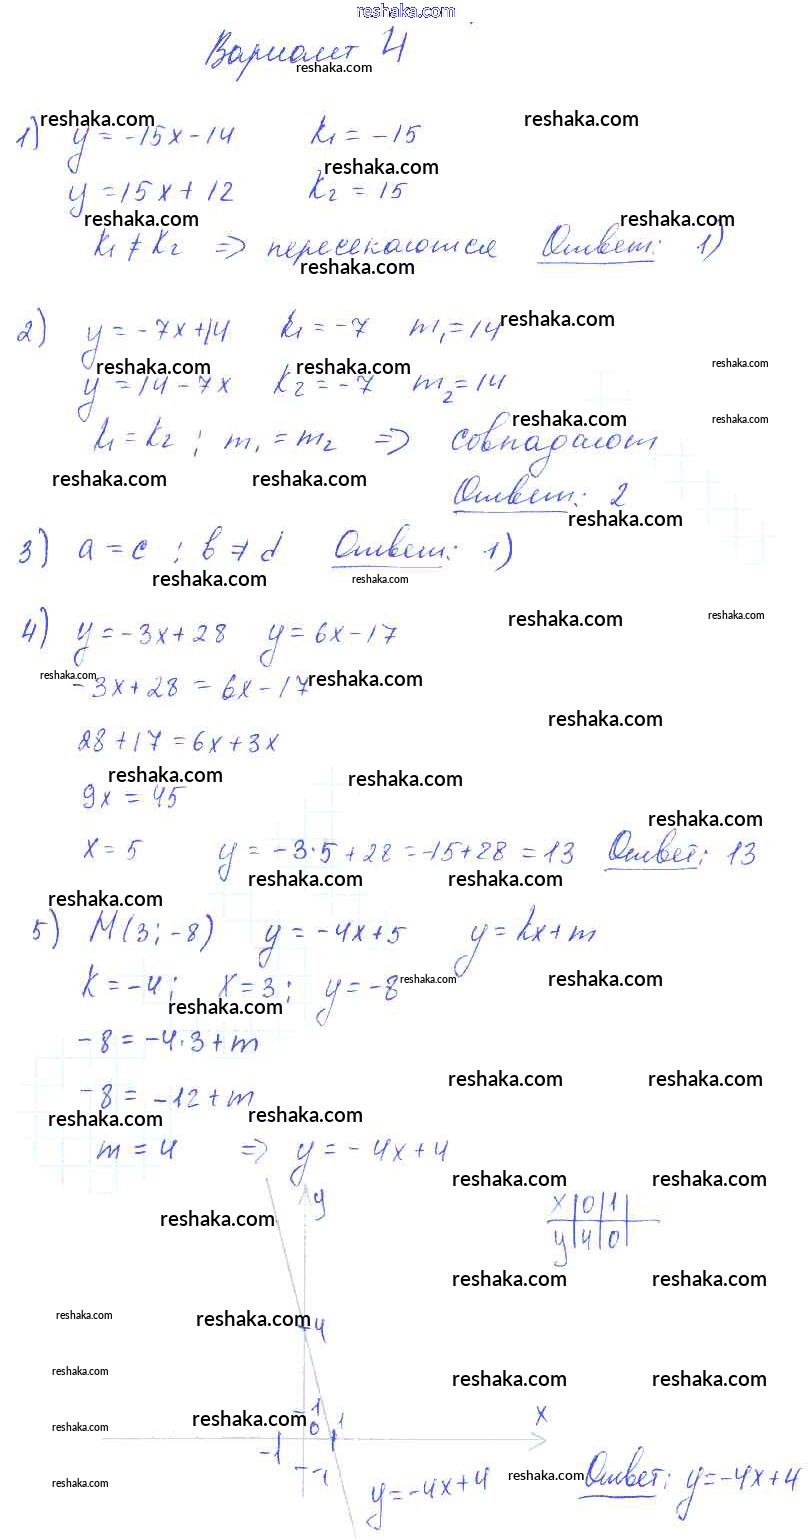 reshaka.com
Вариант 4
reshaka.com
reshaka.com reshaka.com
1) y = -15x - 14 k₁ = -15
reshaka.com
y = 15x + 12 k₂ = 15
reshaka.com reshaka.com
k₁ ≠ k₂ => пересекаются Ответ: 1)
reshaka.com
2) y = -7x + 14 k₁ = -7 m₁ = 14 reshaka.com
reshaka.com reshaka.com reshaka.com
y = 14 - 7x k₂ = -7 m₂ = 14
reshaka.com reshaka.com
k₁ = k₂ ; m₁ = m₂ => совпадают
reshaka.com reshaka.com
Ответ: 2
reshaka.com
3) a = c ; b ≠ d Ответ: 1)
reshaka.com reshaka.com
reshaka.com reshaka.com
4) y = -3x + 28 y = 6x - 17
reshaka.com reshaka.com
-3x + 28 = 6x - 17
reshaka.com
28 + 17 = 6x + 3x
reshaka.com reshaka.com
9x = 45
reshaka.com
x = 5 y = -3·5 + 28 = -15 + 28 = 13 Ответ: 13
reshaka.com reshaka.com
reshaka.com
5) M(3; -8) y = -4x + 5 y = kx + m
k = -4; x = 3; y = -8 reshaka.com reshaka.com
reshaka.com
-8 = -4·3 + m
reshaka.com reshaka.com
-8 = -12 + m
reshaka.com reshaka.com
m = 4 => y = -4x + 4
reshaka.com reshaka.com
y
x 0 1
reshaka.com
y 4 0
reshaka.com reshaka.com
reshaka.com reshaka.com
4
reshaka.com reshaka.com reshaka.com
1
reshaka.com 0 1 x
reshaka.com
-1
-1
reshaka.com
y = -4x + 4 reshaka.com Ответ: y = -4x + 4